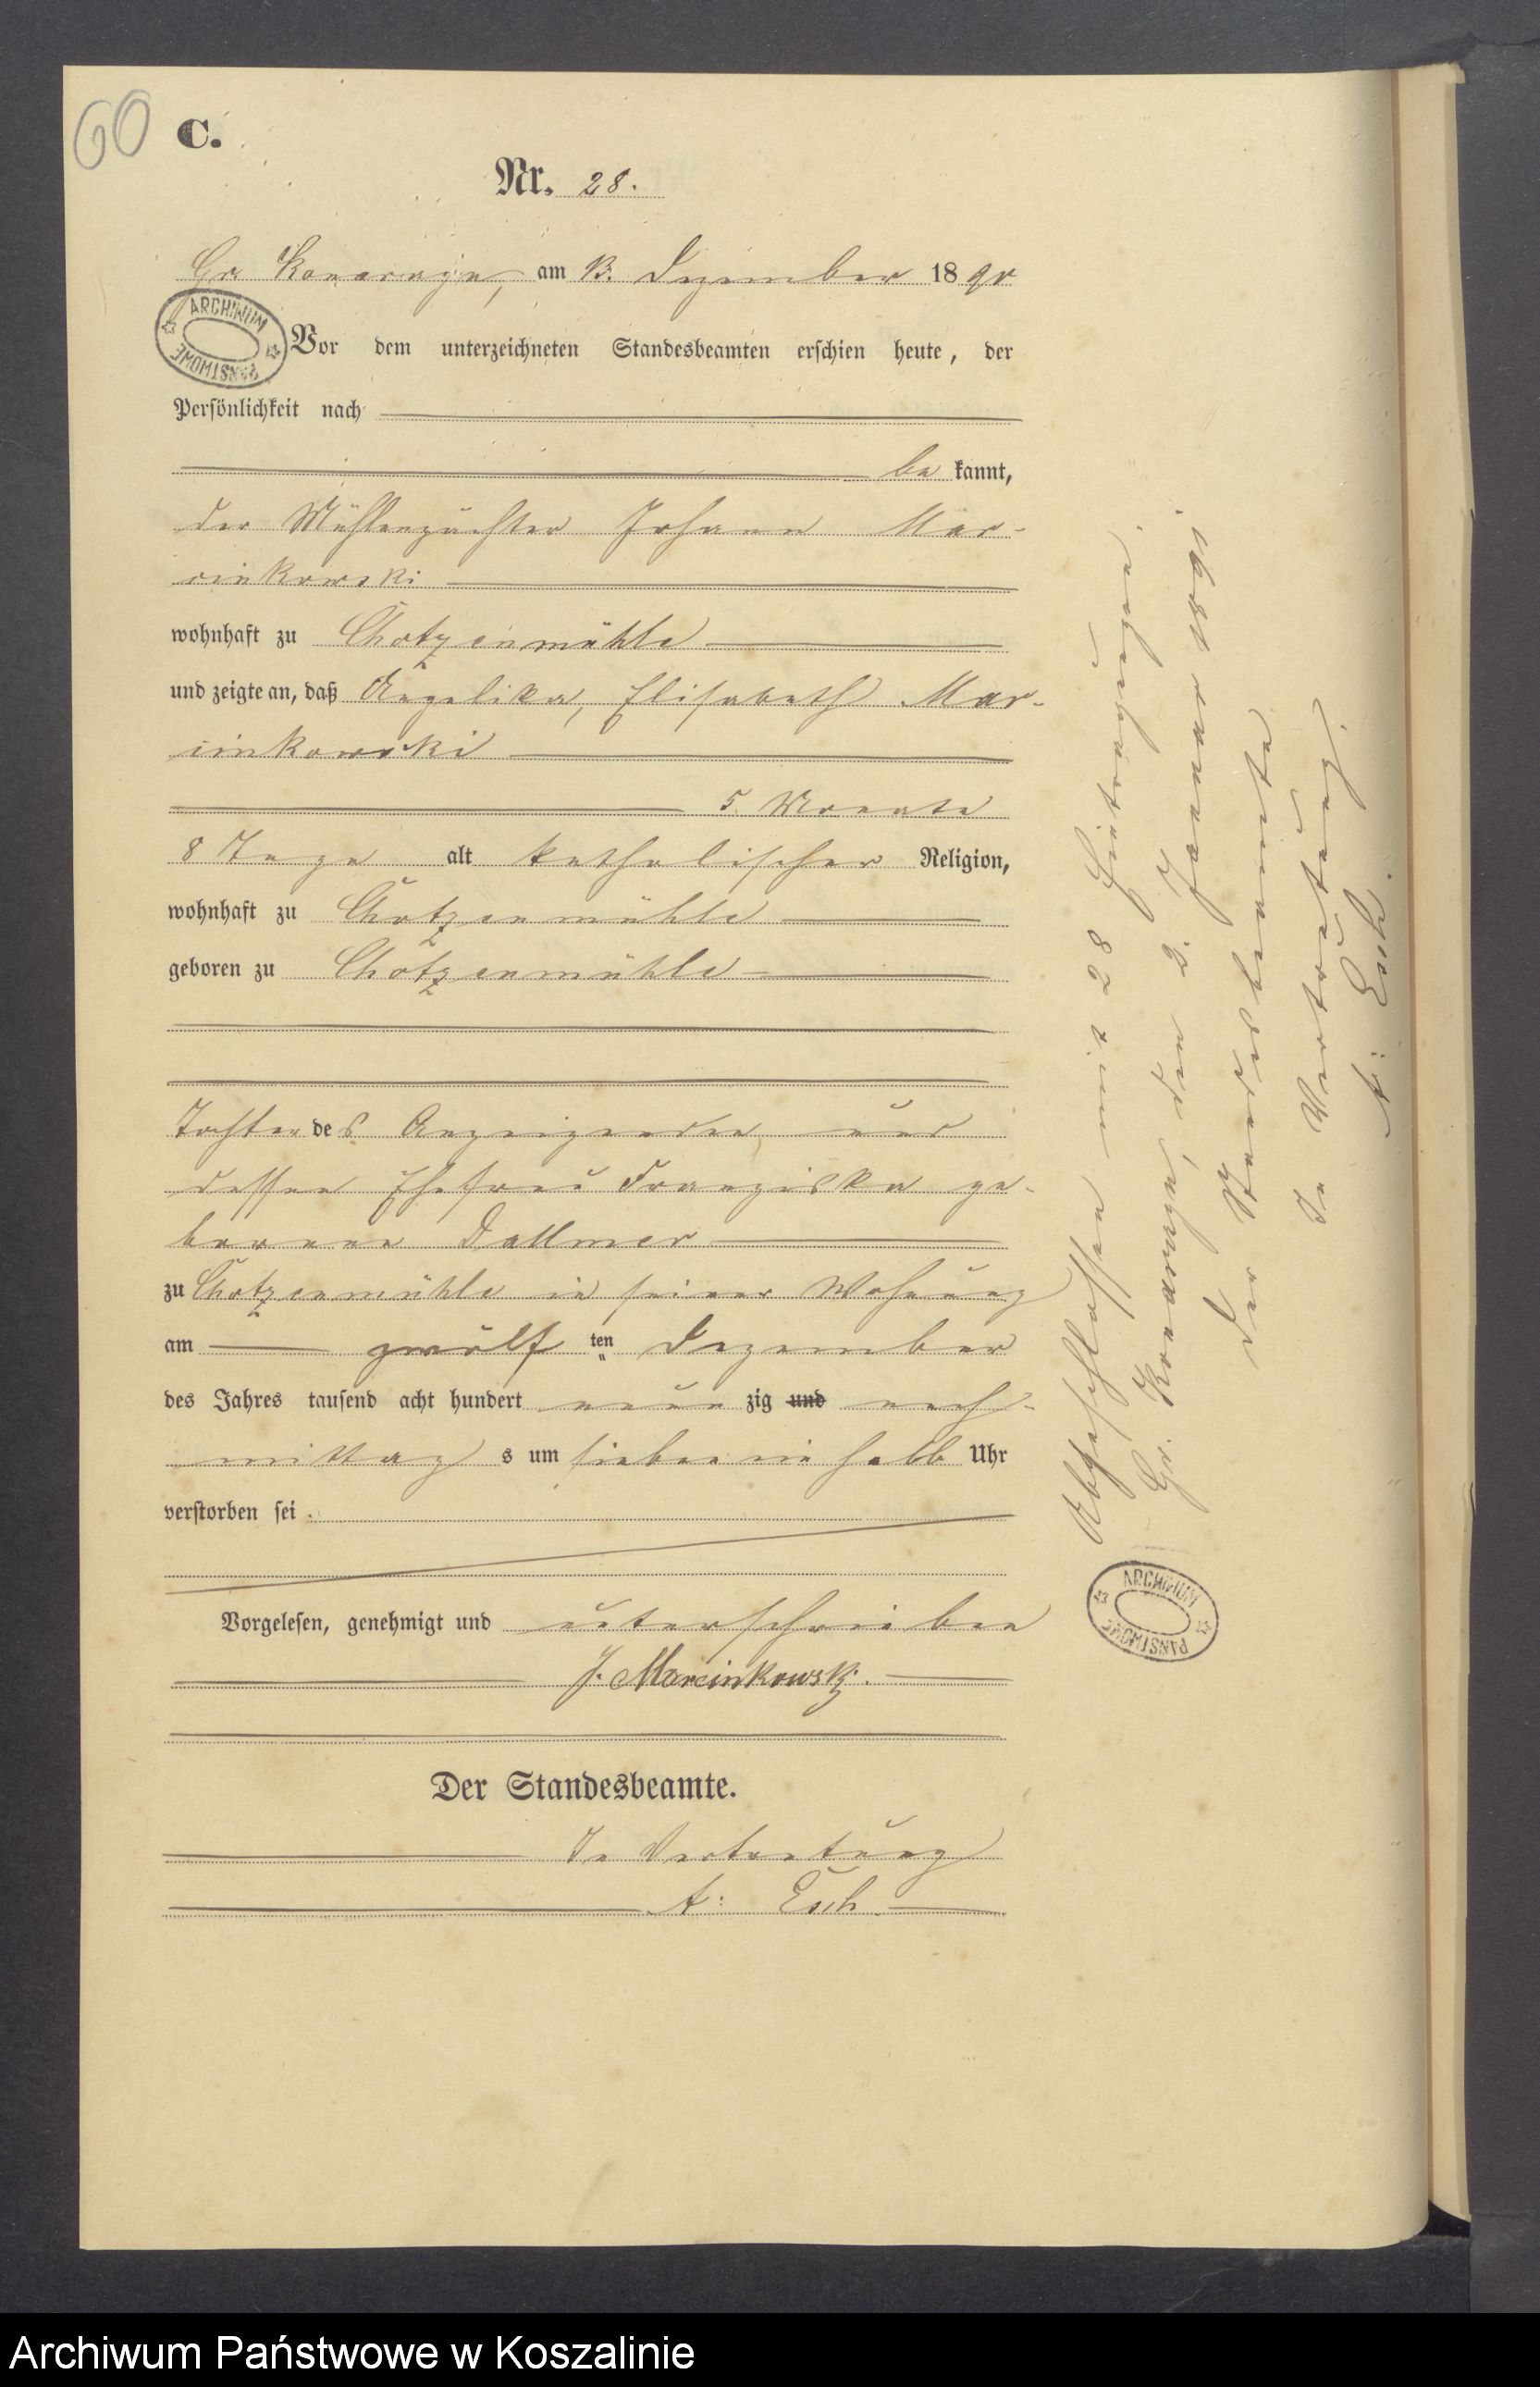 60
C.
Nr. 28.
Gr. Konarczyn, am 13. Dezember 1890
ARCHIWUM PAŃSTWOWE
Vor dem unterzeichneten Standesbeamten erschien heute, der
Persönlichkeit nach
be kannt,
der Mühlenpächter Johann Mar-
cinkowski
wohnhaft zu Chotzenmühle
und zeigte an, daß Angelika, Elisabeth Mar-
cinkowski
5 Monate
8 Tage alt katholischer Religion,
wohnhaft zu Chotzenmühle
geboren zu Chotzenmühle
Tochter des Anzeigenden und
dessen Ehefrau Franziska ge-
borenen Dallmer
zu Chotzenmühle in seiner Wohnung
am zwölf ten Dezember
des Jahres tausend acht hundert neun zig und nach-
mittag s um sieben ein halb Uhr
verstorben sei.
Vorgelesen, genehmigt und unterschrieben
J. Marcinkowski.
Der Standesbeamte.
In Vertretung
A: Esch.
Abgeschlossen mit 28 Eintragungen.
Gr. Konarczyn, den 2. Januar 1891
Der Standesbeamte
In Vertretung.
A: Esch.
ARCHIWUM PAŃSTWOWE
Archiwum Państwowe w Koszalinie